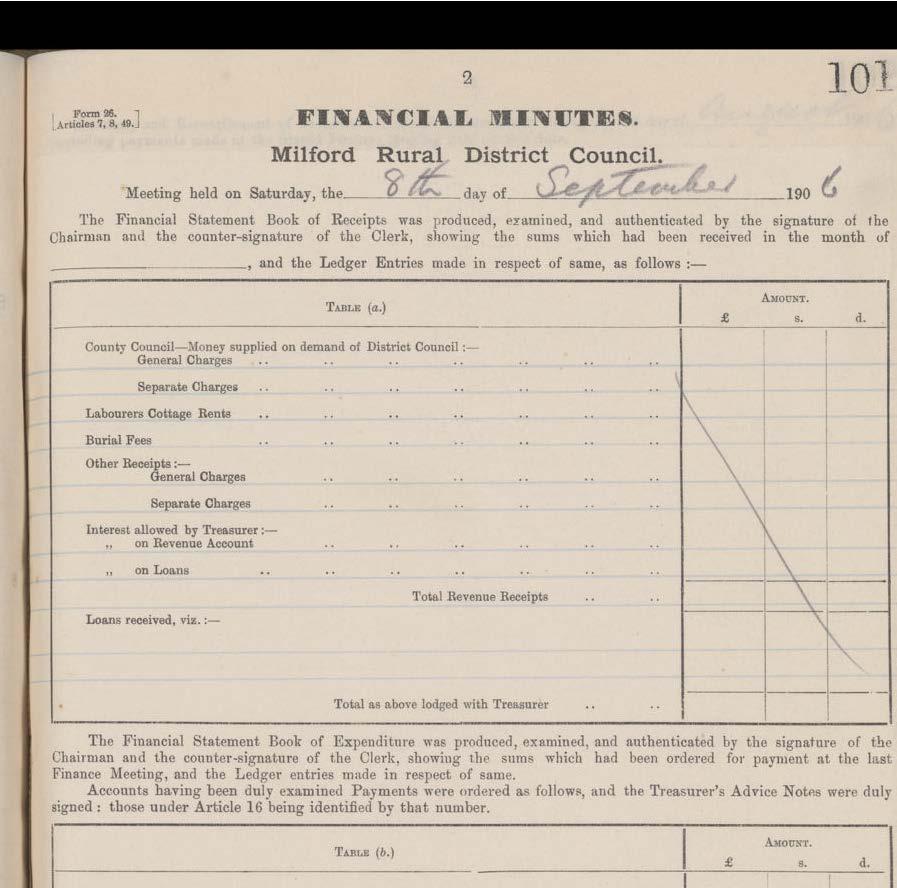 2
101
Form 26.
[Articles 7, 8, 49.]
FINANCIAL MINUTES.
Milford Rural District Council.
Meeting held on Saturday, the 8th day of September 1906
The Financial Statement Book of Receipts was produced, examined, and authenticated by the signature of the
Chairman and the counter-signature of the Clerk, showing the sums which had been received in the month of
, and the Ledger Entries made in respect of same, as follows :—
TABLE (a.)
AMOUNT.
£ s. d.
County Council—Money supplied on demand of District Council :—
General Charges .. .. .. .. .. .. ..
Separate Charges .. .. .. .. .. .. ..
Labourers Cottage Rents .. .. .. .. .. .. ..
Burial Fees .. .. .. .. .. .. ..
Other Receipts :—
General Charges .. .. .. .. .. ..
Separate Charges .. .. .. .. .. ..
Interest allowed by Treasurer :—
„ on Revenue Account .. .. .. .. .. ..
„ on Loans .. .. .. .. .. .. ..
Total Revenue Receipts .. ..
Loans received, viz. :—
Total as above lodged with Treasurer .. ..
The Financial Statement Book of Expenditure was produced, examined, and authenticated by the signature of the
Chairman and the counter-signature of the Clerk, showing the sums which had been ordered for payment at the last
Finance Meeting, and the Ledger entries made in respect of same.
Accounts having been duly examined Payments were ordered as follows, and the Treasurer's Advice Notes were duly
signed : those under Article 16 being identified by that number.
TABLE (b.)
AMOUNT.
£ s. d.